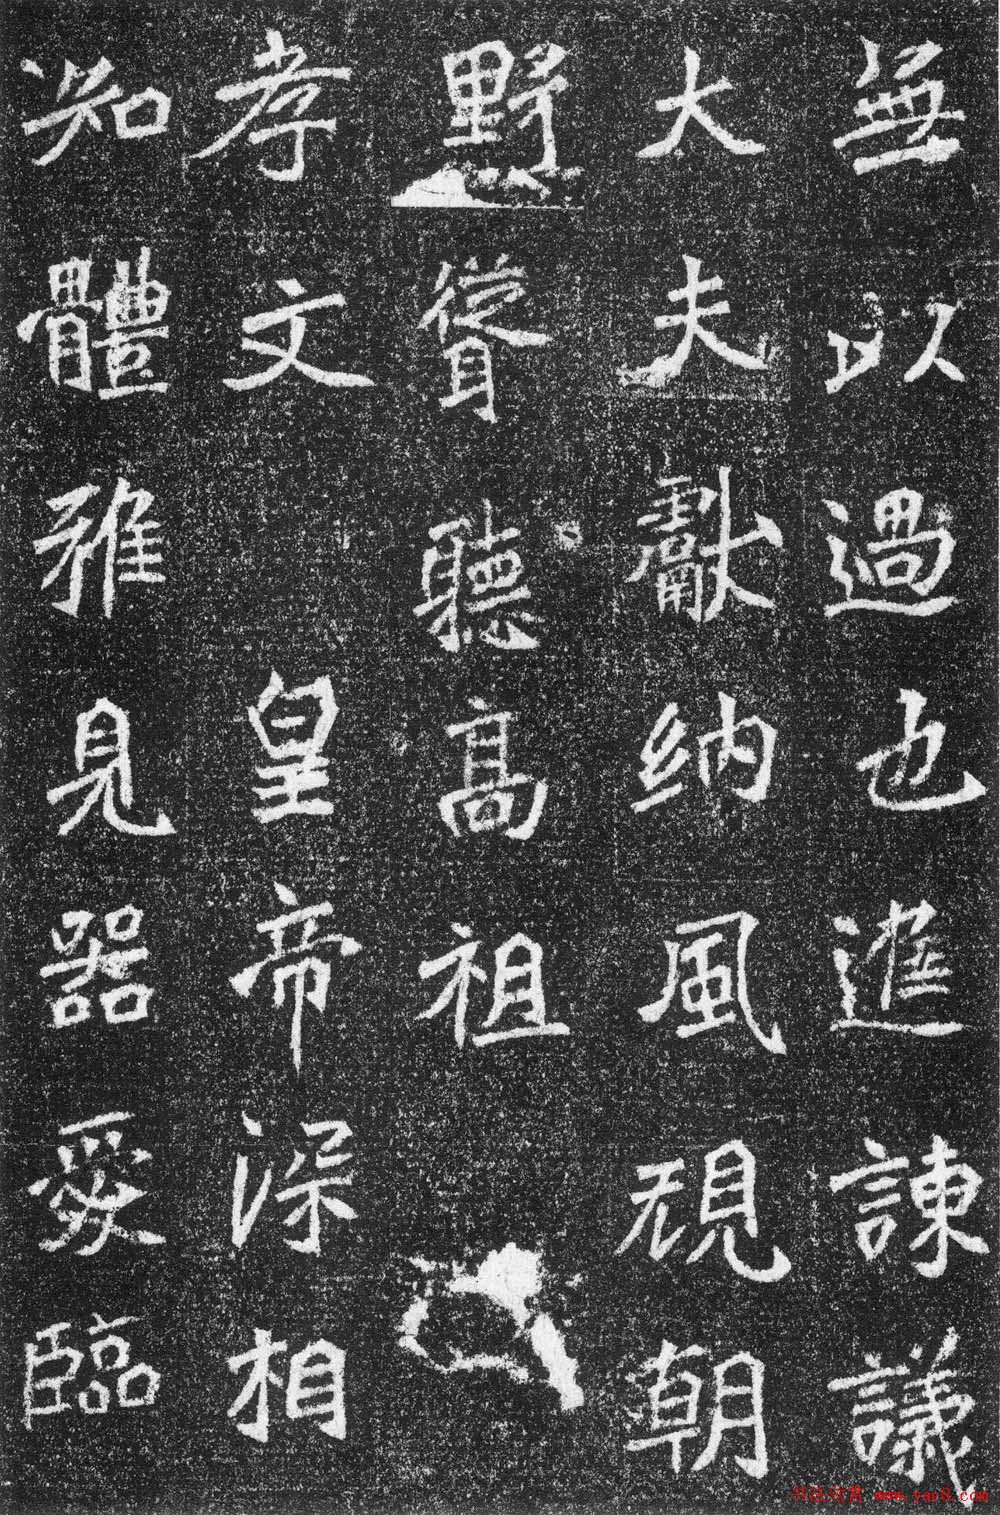 無以過也進諫議
大夫獻納風規朝
野聳聽高祖
孝文皇帝深相
知體雅見器愛臨
书法欣赏 www.yac8.com